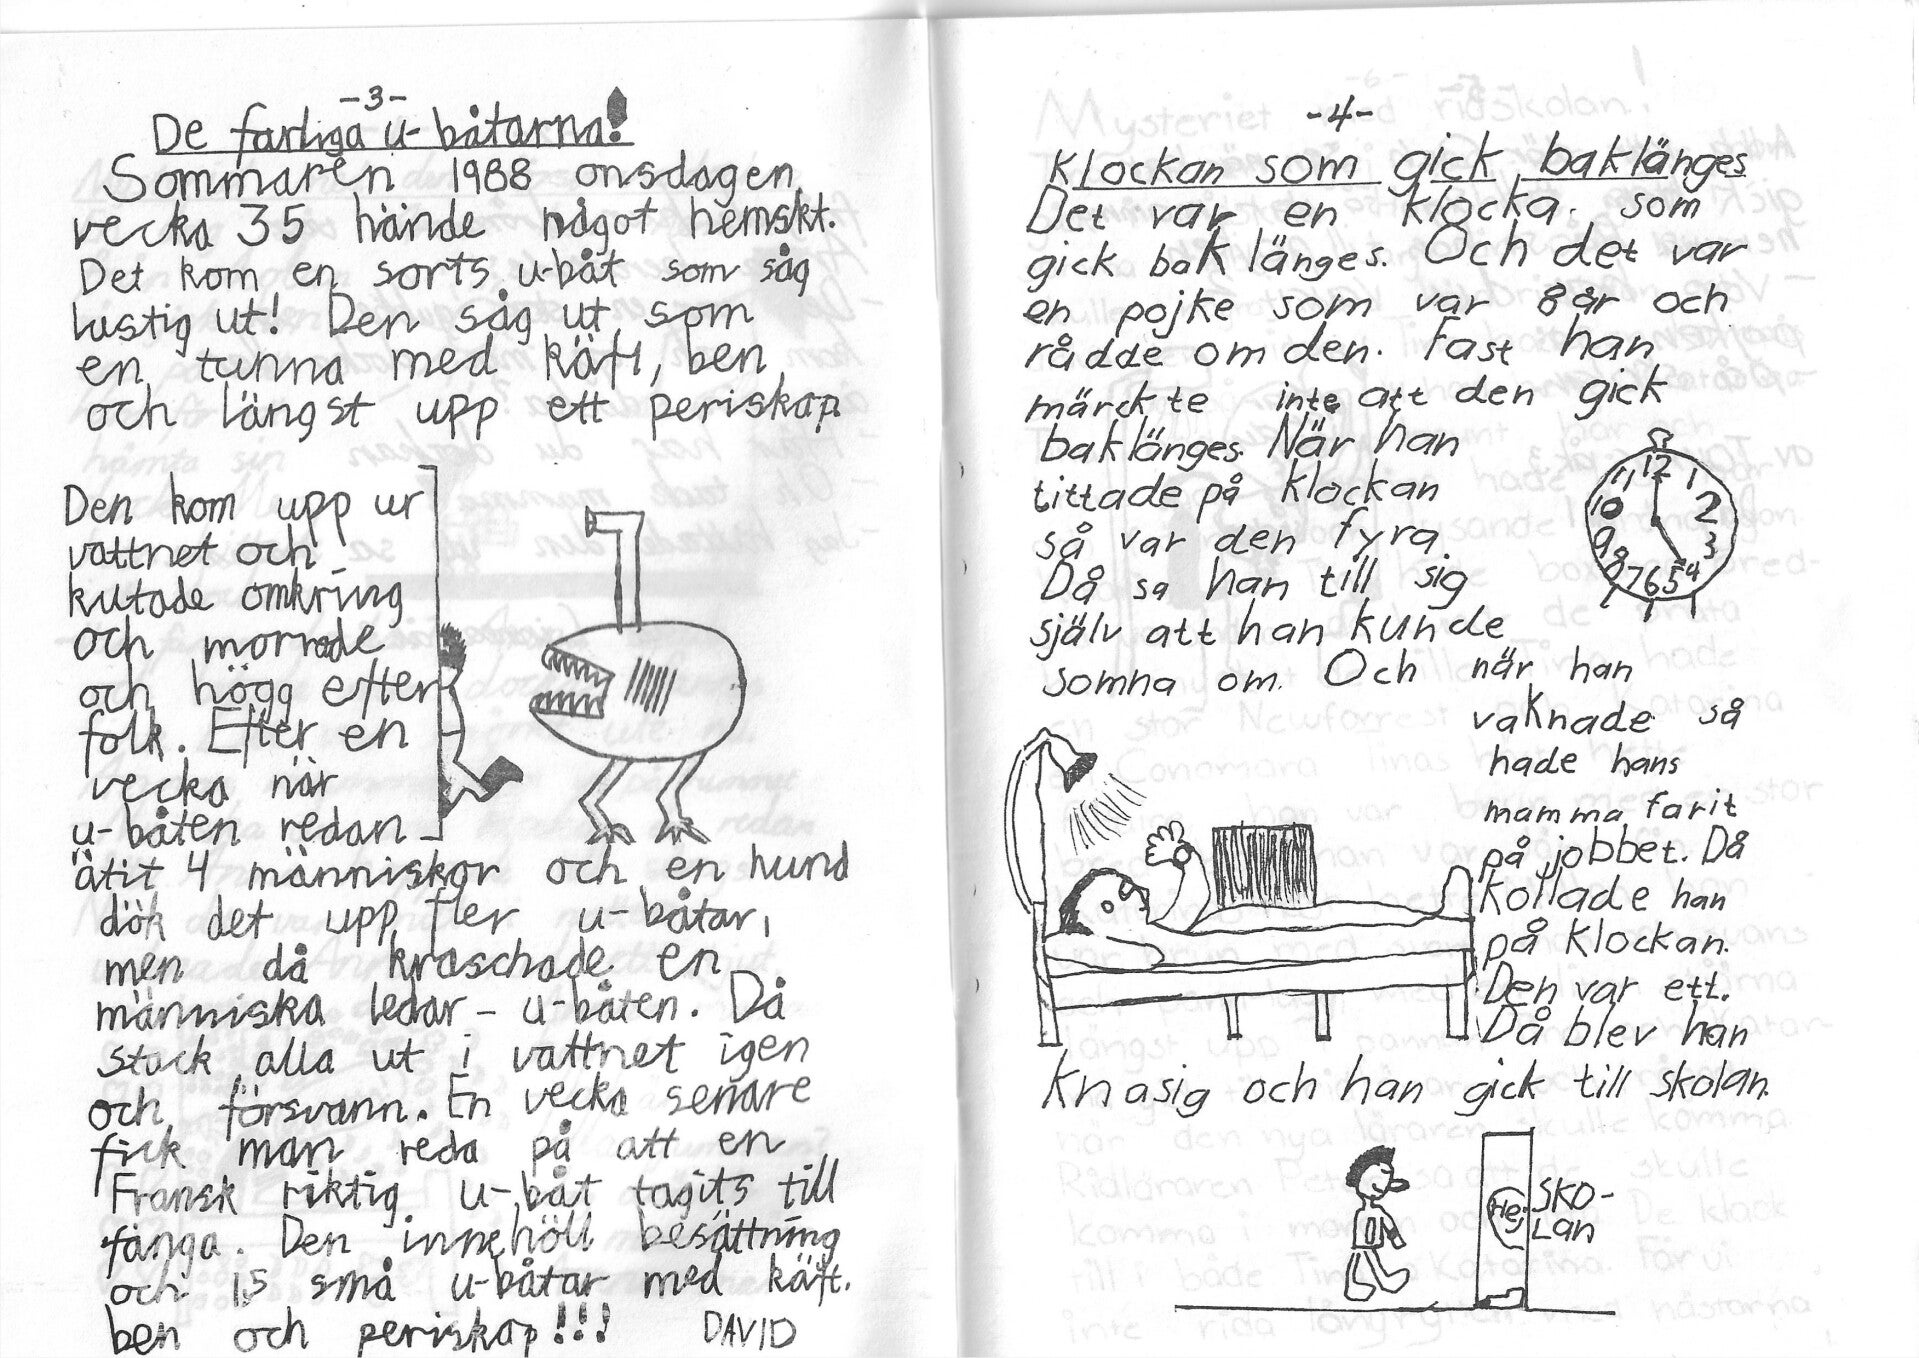 -3-
De farliga u-båtarna!
Sommaren 1988 onsdagen
vecka 35 hände något hemskt.
Det kom en sorts u-båt som såg
lustig ut! Den såg ut som
en tunna med käft, ben
och längst upp ett periskop
Den kom upp ur
vattnet och
kutade omkring
och morrade
och högg efter
folk. Efter en
vecka när
u-båten redan
ätit 4 människor och en hund
dök det upp fler u-båtar,
men då kraschade en
människa ledar-u-båten. Då
stack alla ut i vattnet igen
och försvann. En vecka senare
fick man reda på att en
Fransk riktig u-båt tagits till
fånga. Den innehöll besättning
och 15 små u-båtar med käft.
ben och periskop!!! DAVID
-4-
Klockan som gick baklänges
Det var en klocka. som
gick bak länges. Och det var
en pojke som var 8 år och
rådde om den. Fast han
märckte inte att den gick
baklänges. När han
tittade på klockan
så var den fyra.
Då sa han till sig
själv att han kunde
somna om. Och när han
vaknade så
hade hans
mamma farit
på jobbet. Då
kollade han
på klockan.
Den var ett.
Då blev han
knasig och han gick till skolan.
12
11 1
10 2
9 3
8 7 6 5 4
Hej
SKO-
LAN